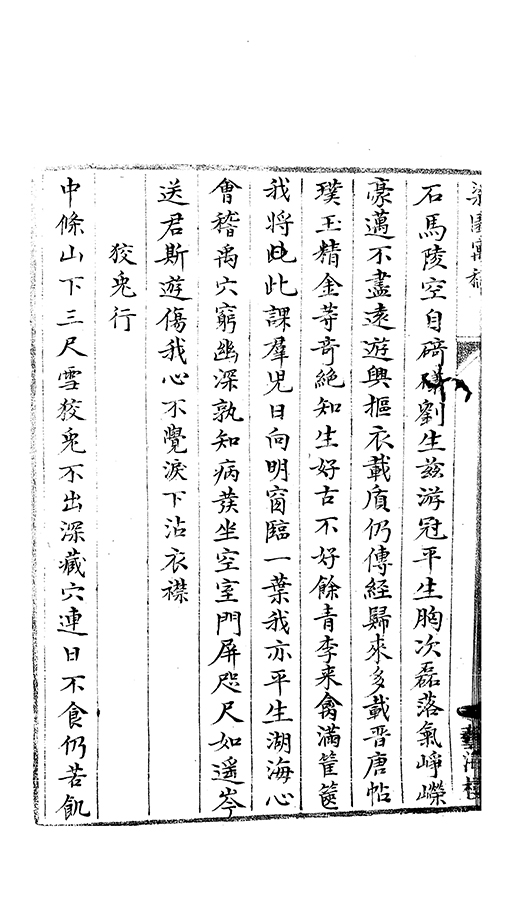 石馬陵空自碕礒劉生茲游冠平生胸次磊落氣崢嶸
豪邁不盡遠遊興摳衣載貭仍傳經歸來多載晋唐帖
璞玉精金䓁竒絶知生好古不好餘青李来禽滿筐篋
我將此課羣児日向明窗臨一葉我亦平生湖海心
會稽禹穴窮幽深孰知病䠖坐空室門屏咫尺如遥岑
送君斯遊傷我心不覺淚下沾衣襟
狡兎行
中條山下三尺雪狡兎不出深藏穴連日不食仍苦飢